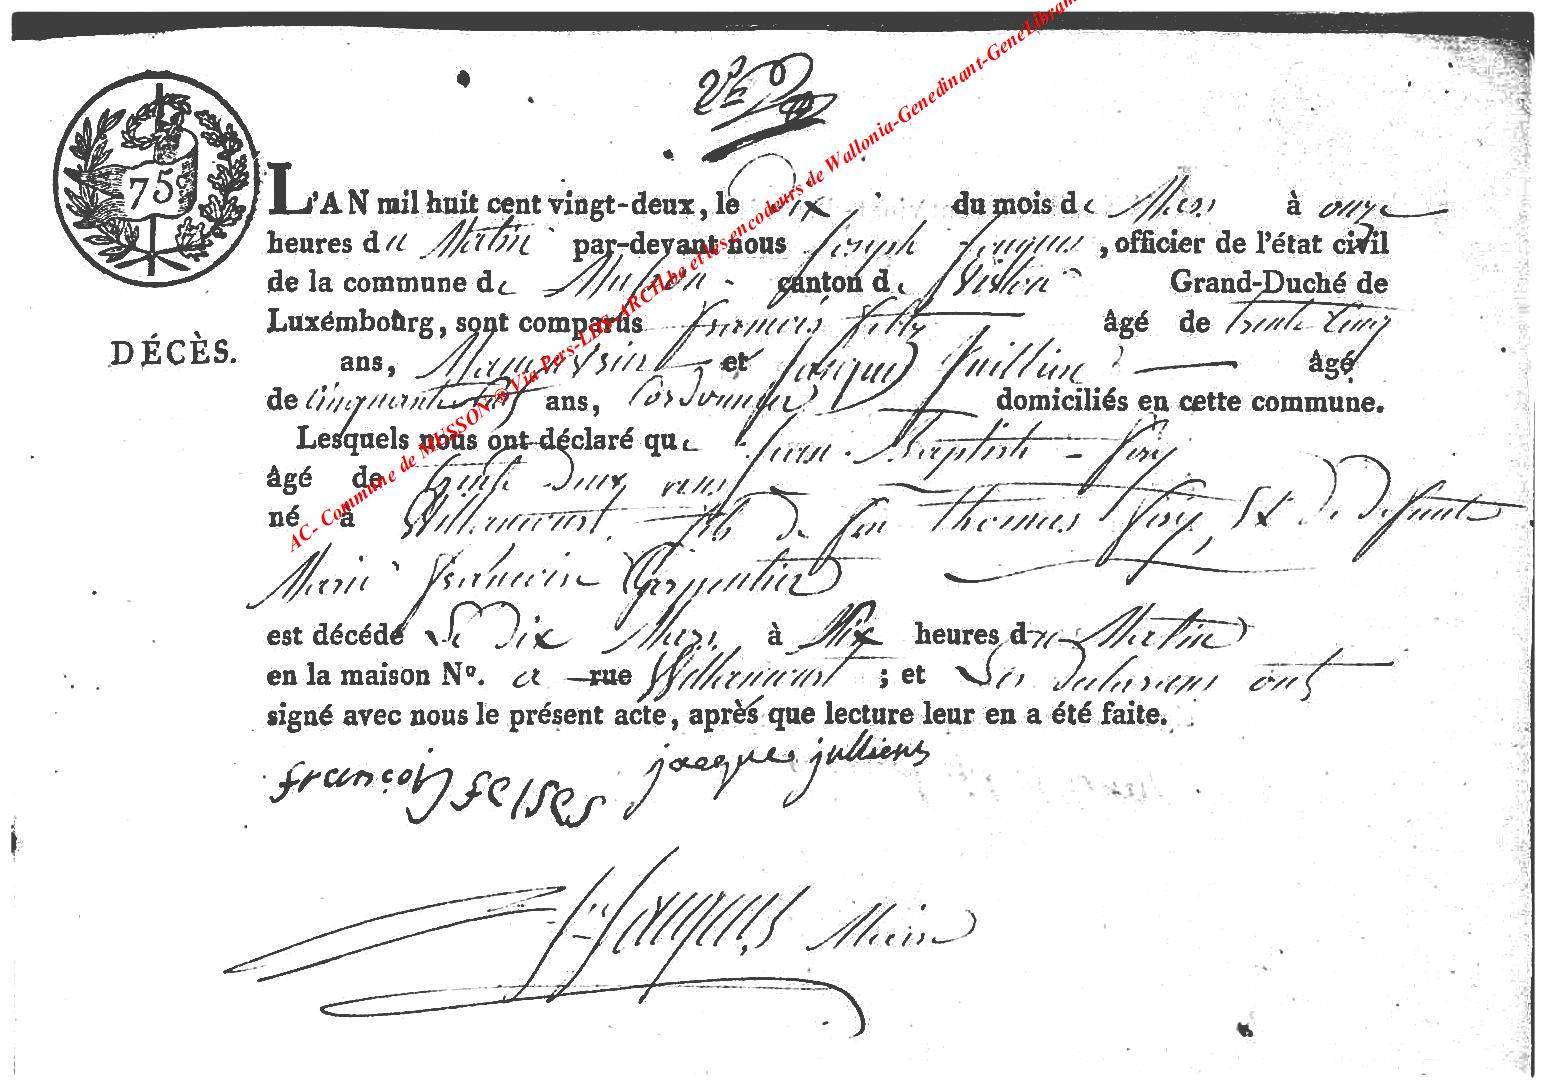 2e D
75c
L'AN mil huit cent vingt-deux, le Dix du mois de Mars à onze
heures du Matin par-devant nous Joseph Jacques, officier de l'état civil
de la commune de Musson canton de Virton Grand-Duché de
Luxembourg, sont comparus François âgé de trente cinq
DÉCÈS.
ans, Manouvrier et Jacques Jullien âgé
de Cinquante ans, Cordonnier domiciliés en cette commune.
Lesquels nous ont déclaré que Jean Baptiste
âgé de trente Deux ans
né à Willancourt fils de feu Thomas Et de Defunte
Marie Françoise Carpentier
est décédé Le Dix Mars à Dix heures du Matin
en la maison No. a rue Willancourt ; et Les Declarans ont
signé avec nous le présent acte, après que lecture leur en a été faite.
françois felses jacques julliens
Jacques, Maire
AC- Commune de MUSSON @ Via Pers-LHIS-ARCH.be et les encodeurs de Wallonia-Genedinant-GeneLibrami